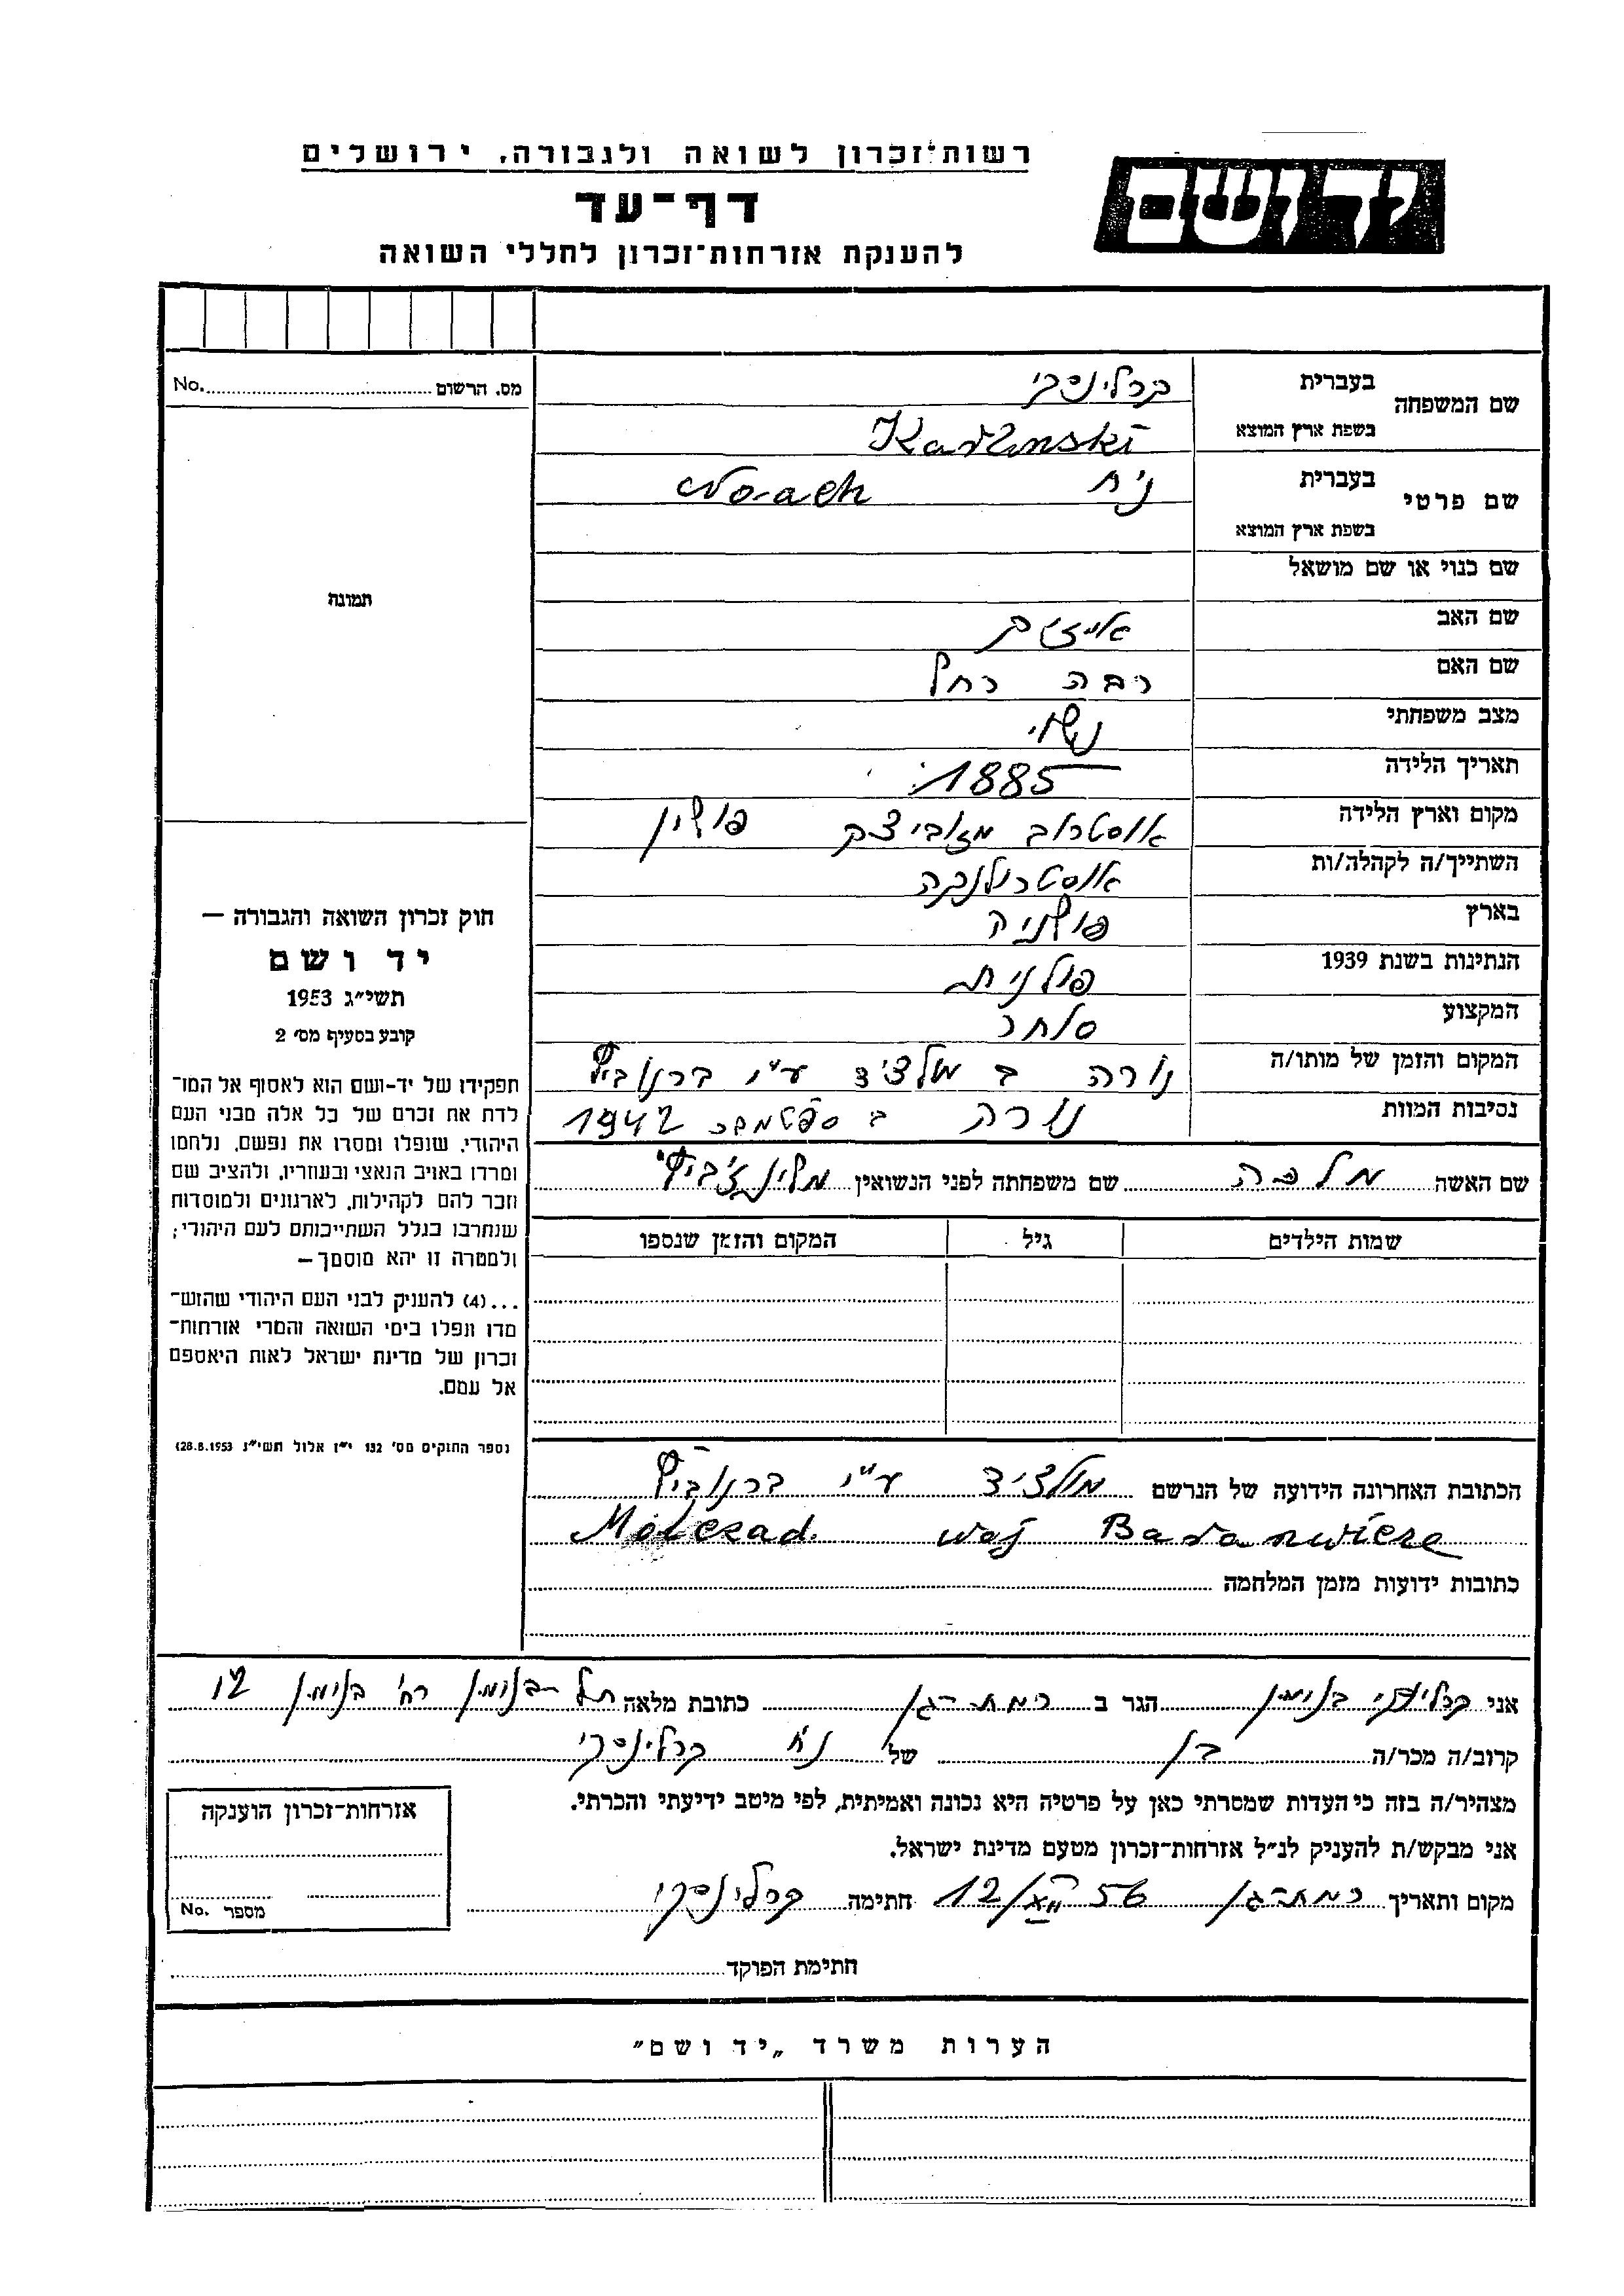 רשות־זכרון לשואה ולגבורה, ירושלים
יד ושם
דף־עד
להענקת אזרחות־זכרון לחללי השואה
מס. הרשום No.
תמונה
שם המשפחה
בעברית קרלינסקי
בשפת ארץ המוצא Karlinski
שם פרטי
בעברית נח Noach
בשפת ארץ המוצא
שם כנוי או שם מושאל
שם האב אייזיק
שם האם רחל
מצב משפחתי נשוי
תאריך הלידה 1885
מקום וארץ הלידה אוסטרוב מזוביצק פולין
השתייך/ה לקהלה/ות אוסטרולנקה
בארץ פולניה
הנתינות בשנת 1939 פולנית
המקצוע סוחר
המקום והזמן של מותו/ה נורה ב מולצ'ד ע"י ברנוביץ
נסיבות המוות נורה ב ספטמבר 1942
שם האשה מלכה שם משפחתה לפני הנשואין
שמות הילדים גיל המקום והזמן שנספו
הכתובת האחרונה הידועה של הנרשם מולצ'ד ע"י ברנוביץ
Molczad. woj Baranwicze
כתובות ידועות מזמן המלחמה
חוק זכרון השואה והגבורה —
יד ושם
תשי״ג 1953
קובע בסעיף מס׳ 2
תפקידו של יד־ושם הוא לאסוף אל המו־
לדת את זכרם של כל אלה מבני העם
היהודי, שנפלו ומסרו את נפשם, נלחמו
ומרדו באויב הנאצי ובעוזריו, ולהציב שם
וזכר להם לקהילות, לארגונים ולמוסדות
שנחרבו בגלל השתייכותם לעם היהודי;
ולמטרה זו יהא מוסמך—
...(4) להעניק לבני העם היהודי שהוש־
מדו ונפלו בימי השואה והמרי אזרחות־
זכרון של מדינת ישראל לאות היאספם
אל עמם.
(ספר החוקים מס׳ 132 י״ז אלול תשי״ג 28.8.1953)
אני קרלינסקי בנימין הגר ב רמת-גן כתובת מלאה תל בנימין רח' בנימין 12
קרוב/ה מכר/ה בן של נח קרלינסקי
מצהיר/ה בזה כי העדות שמסרתי כאן על פרטיה היא נכונה ואמיתית, לפי מיטב ידיעתי והכרתי.
אני מבקש/ת להעניק לנ״ל אזרחות־זכרון מטעם מדינת ישראל.
מקום ותאריך רמת-גן 56 12/ חתימה קרלינסקי
אזרחות־זכרון הוענקה
מספר No.
חתימת הפוקד
הערות משרד „יד ושם"